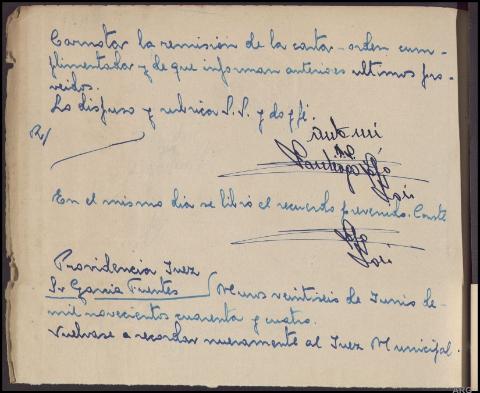 Carnotar la remisión de la carta-orden cum-
plimentada y de que informan anteriores ultimos pro-
veidos.
Lo dispuso y rubrica S.S. y doy fé.
R/
Ante mi
Santiago
En el mismo dia se libró el recuerdo prevenido. Conste
Providencia Juez
Sr Garcia Fuentes
veintiseis de Junio de
mil novecientos cuarenta y cuatro.
Vuelvase a recordar nuevamente al Juez Municipal.
ARG